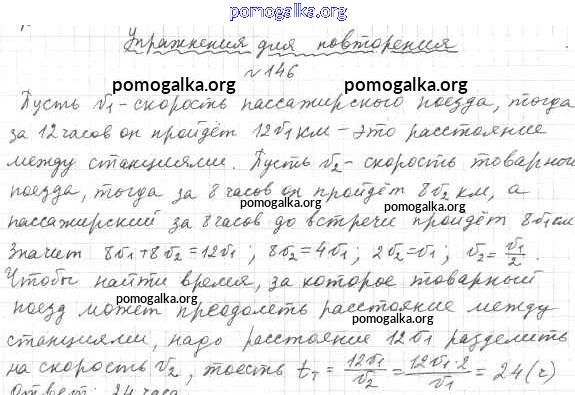 pomogalka.org
Упражнения для повторения
№146
pomogalka.org pomogalka.org
Пусть v₁ - скорость пассажирского поезда, тогда
за 12 часов он пройдёт 12v₁ км - это расстояние
между станциями. Пусть v₂ - скорость товарного
поезда, тогда за 8 часов он пройдёт 8v₂ км, а
pomogalka.org pomogalka.org
пассажирский за 8 часов до встречи пройдёт 8v₁ км
Значит 8v₁+8v₂=12v₁; 8v₂=4v₁; 2v₂=v₁; v₂=v₁/2.
Чтобы найти время, за которое товарный
pomogalka.org
поезд может преодолеть расстояние между
pomogalka.org
станциями, надо расстояние 12v₁ разделить
на скорость v₂, тоесть tт = 12v₁/v₂ = 12v₁·2/v₁ = 24 (ч)
Ответ: 24 часа.
pomogalka.org